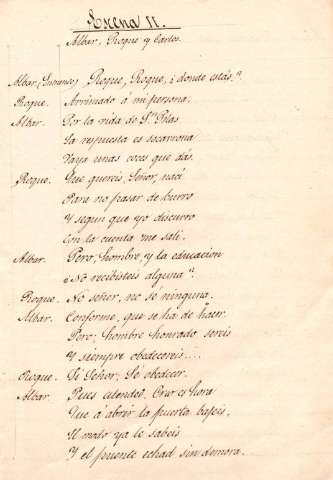 Escena 11.
Albar, Roque y Carlos.
Albar Roque, Roque, ¿donde estás?
Roque. Arrimado á mi persona.
Albar. Por la vida de Sn Blas
La respuesta es socarrona
Vaya unas coces que dás.
Roque. Que quereis, Señor, nací
Para no pasar de burro
Y segun que yo discurro
Con la cuenta me salí.
Albar. Pero, hombre, y la educacion
¿No recibisteis alguna?
Roque. No señor, no sé ninguna.
Albar. Conforme, que se ha de hacer.
Pero, hombre honrado sereis
Y siempre obedecereis....
Roque. Si Señor; Sé obedecer.
Albar. Pues atended, Oro y hora
Que á abrir la puerta bajeis,
El modo ya le sabeis
Y el puente echad sin demora.